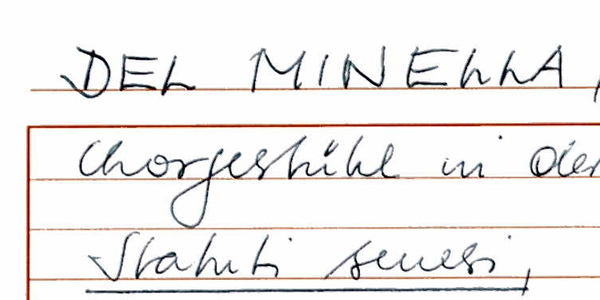 DEL MINELLA,
Chorgestühl in der
Statuti senesi,